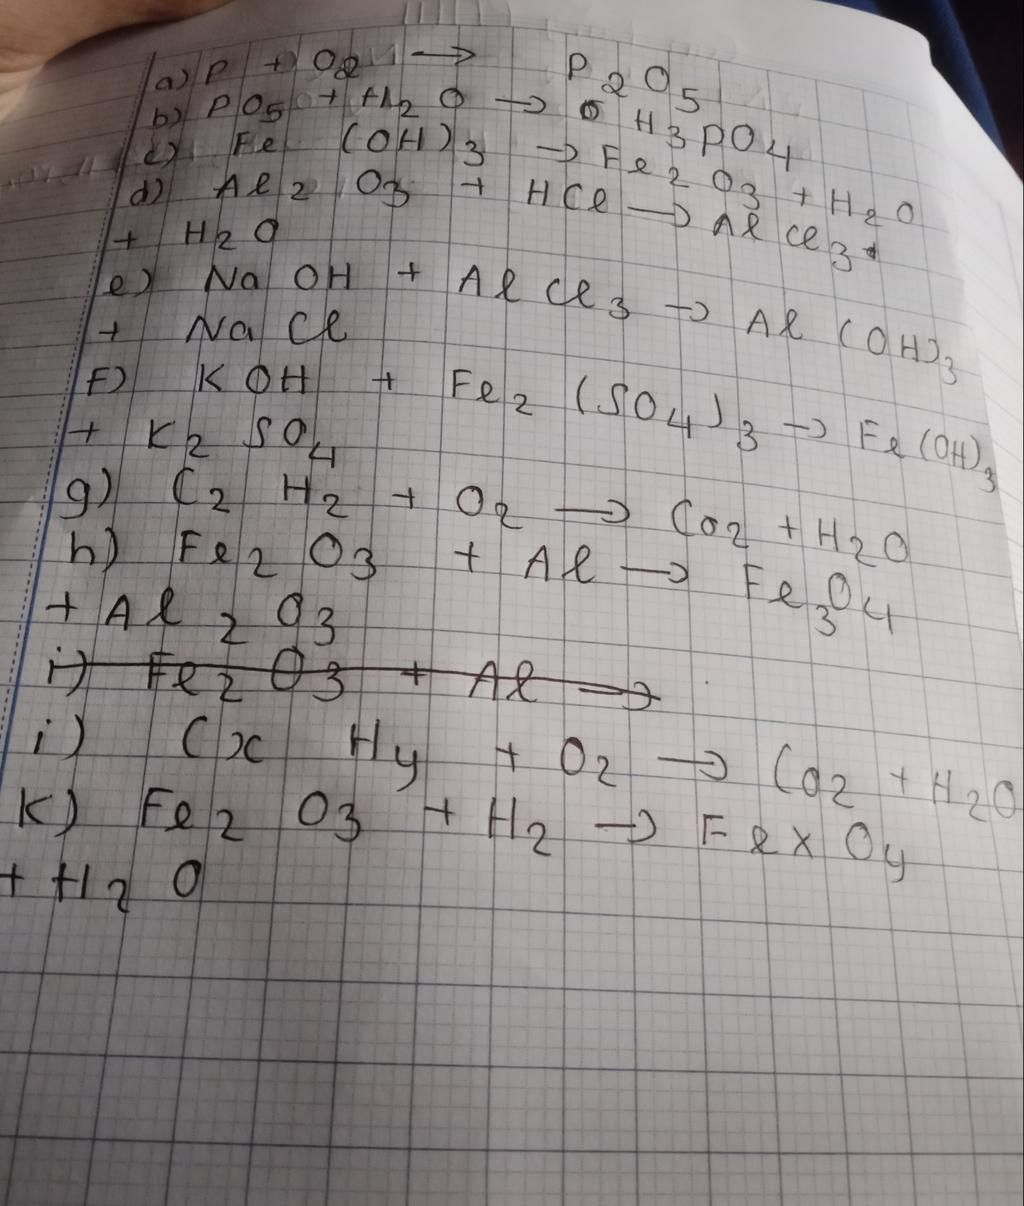 a) P + O2 → P2O5
b) PO5 + H2O → H3PO4
c) Fe (OH)3 → Fe2O3 + H2O
d) Al2 O3 + HCl → AlCl3
+ H2O
e) NaOH + AlCl3 → Al(OH)3
+ NaCl
F) KOH + Fe2(SO4)3 → Fe(OH)3
+ K2SO4
g) C2H2 + O2 → CO2 + H2O
h) Fe2O3 + Al → Fe3O4
+ Al2O3
i) Fe2O3 + Al →
i) Cx Hy + O2 → CO2 + H2O
K) Fe2O3 + H2 → FexOy
+ H2O